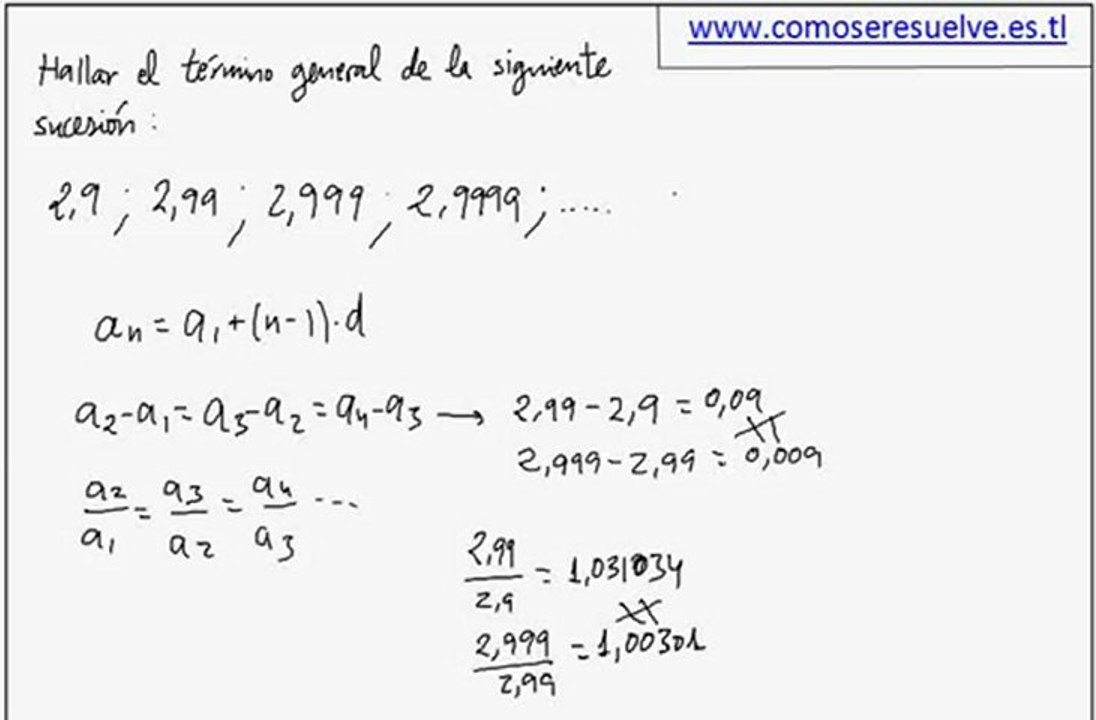 www.comoseresuelve.es.tl
Hallar el término general de la siguiente
sucesión:
2,9 ; 2,99 ; 2,999 ; 2,9999 ; .....
an = a1 + (n-1)·d
a2-a1 = a3-a2 = a4-a3 → 2,99 - 2,9 = 0,09
2,999 - 2,99 = 0,009
a2/a1 = a3/a2 = a4/a3 ...
2,99/2,9 = 1,031034
2,999/2,99 = 1,00301